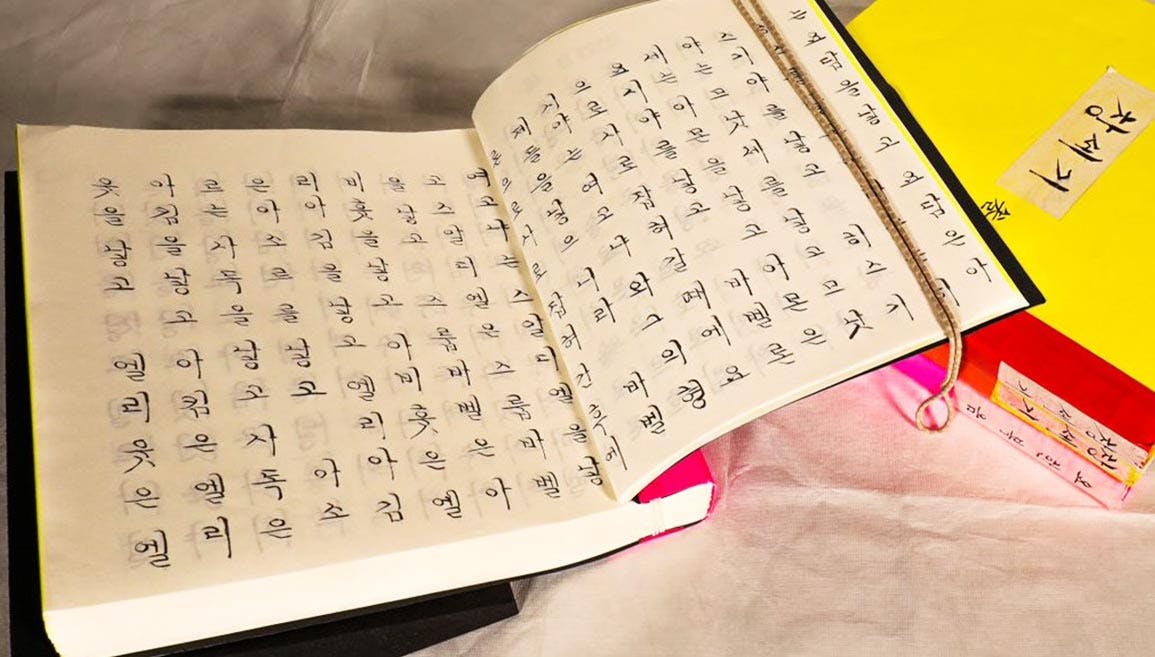 는 요담을 낳고 요담은 아
야는 므낫세를 낳고 므낫
세는 아몬을 낳고 아몬은
요시야를 낳고 바벨론
으로 사로잡혀 갈 때에 요
시야는 여고냐와 그의 형
제들을 낳으니라 바벨
론으로 사로잡혀 간 후에
여고냐는 스알디엘을 낳
고 스알디엘은 스룹바벨
을 낳고 스룹바벨은 아
비훗을 낳고 아비훗은 엘
리아김을 낳고 엘리아김
은 아소르를 낳고 아소
르는 사독을 낳고 사독은
아킴을 낳고 아킴은 엘리
웃을 낳고 엘리웃은 엘
창세기